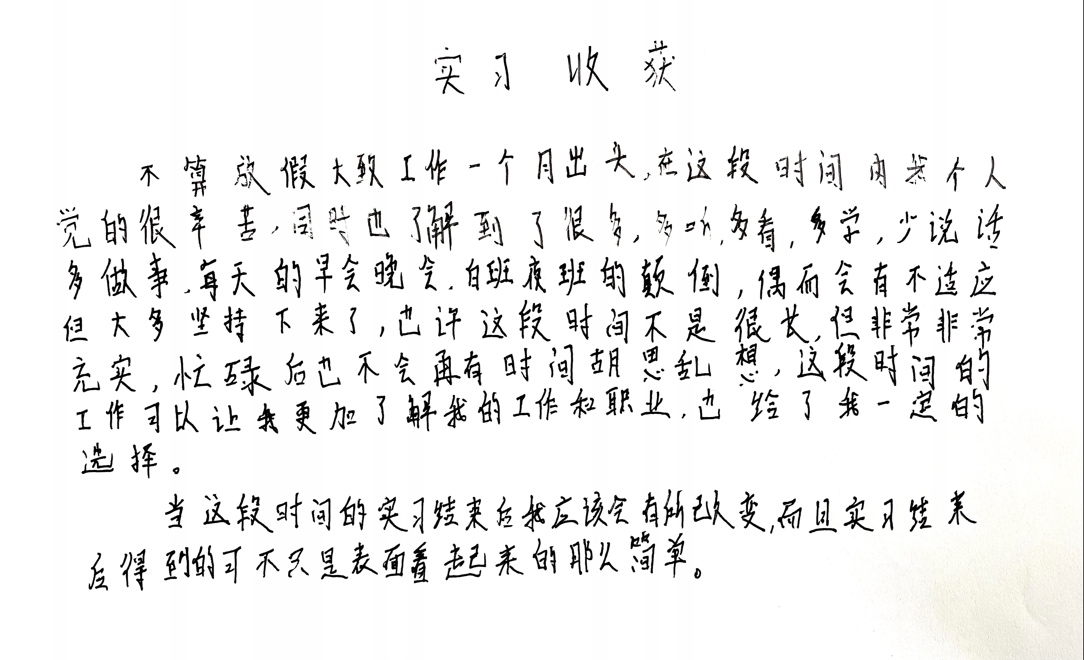 实习 收获
不算放假大致工作一个月出头,在这段时间内我个人
觉的很辛苦,同时也了解到了很多,多听,多看,多学,少说话
多做事,每天的早会晚会,白班夜班的颠倒,偶而会有不适应
但大多坚持下来了,也许这段时间不是很长,但非常非常
充实,忙碌后也不会再有时间胡思乱想,这段时间的
工作可以让我更加了解我的工作和职业,也给了我一定的
选择。
当这段时间的实习结束后我应该会有所改变,而且实习结束
后得到的可不只是表面看起来的那么简单。